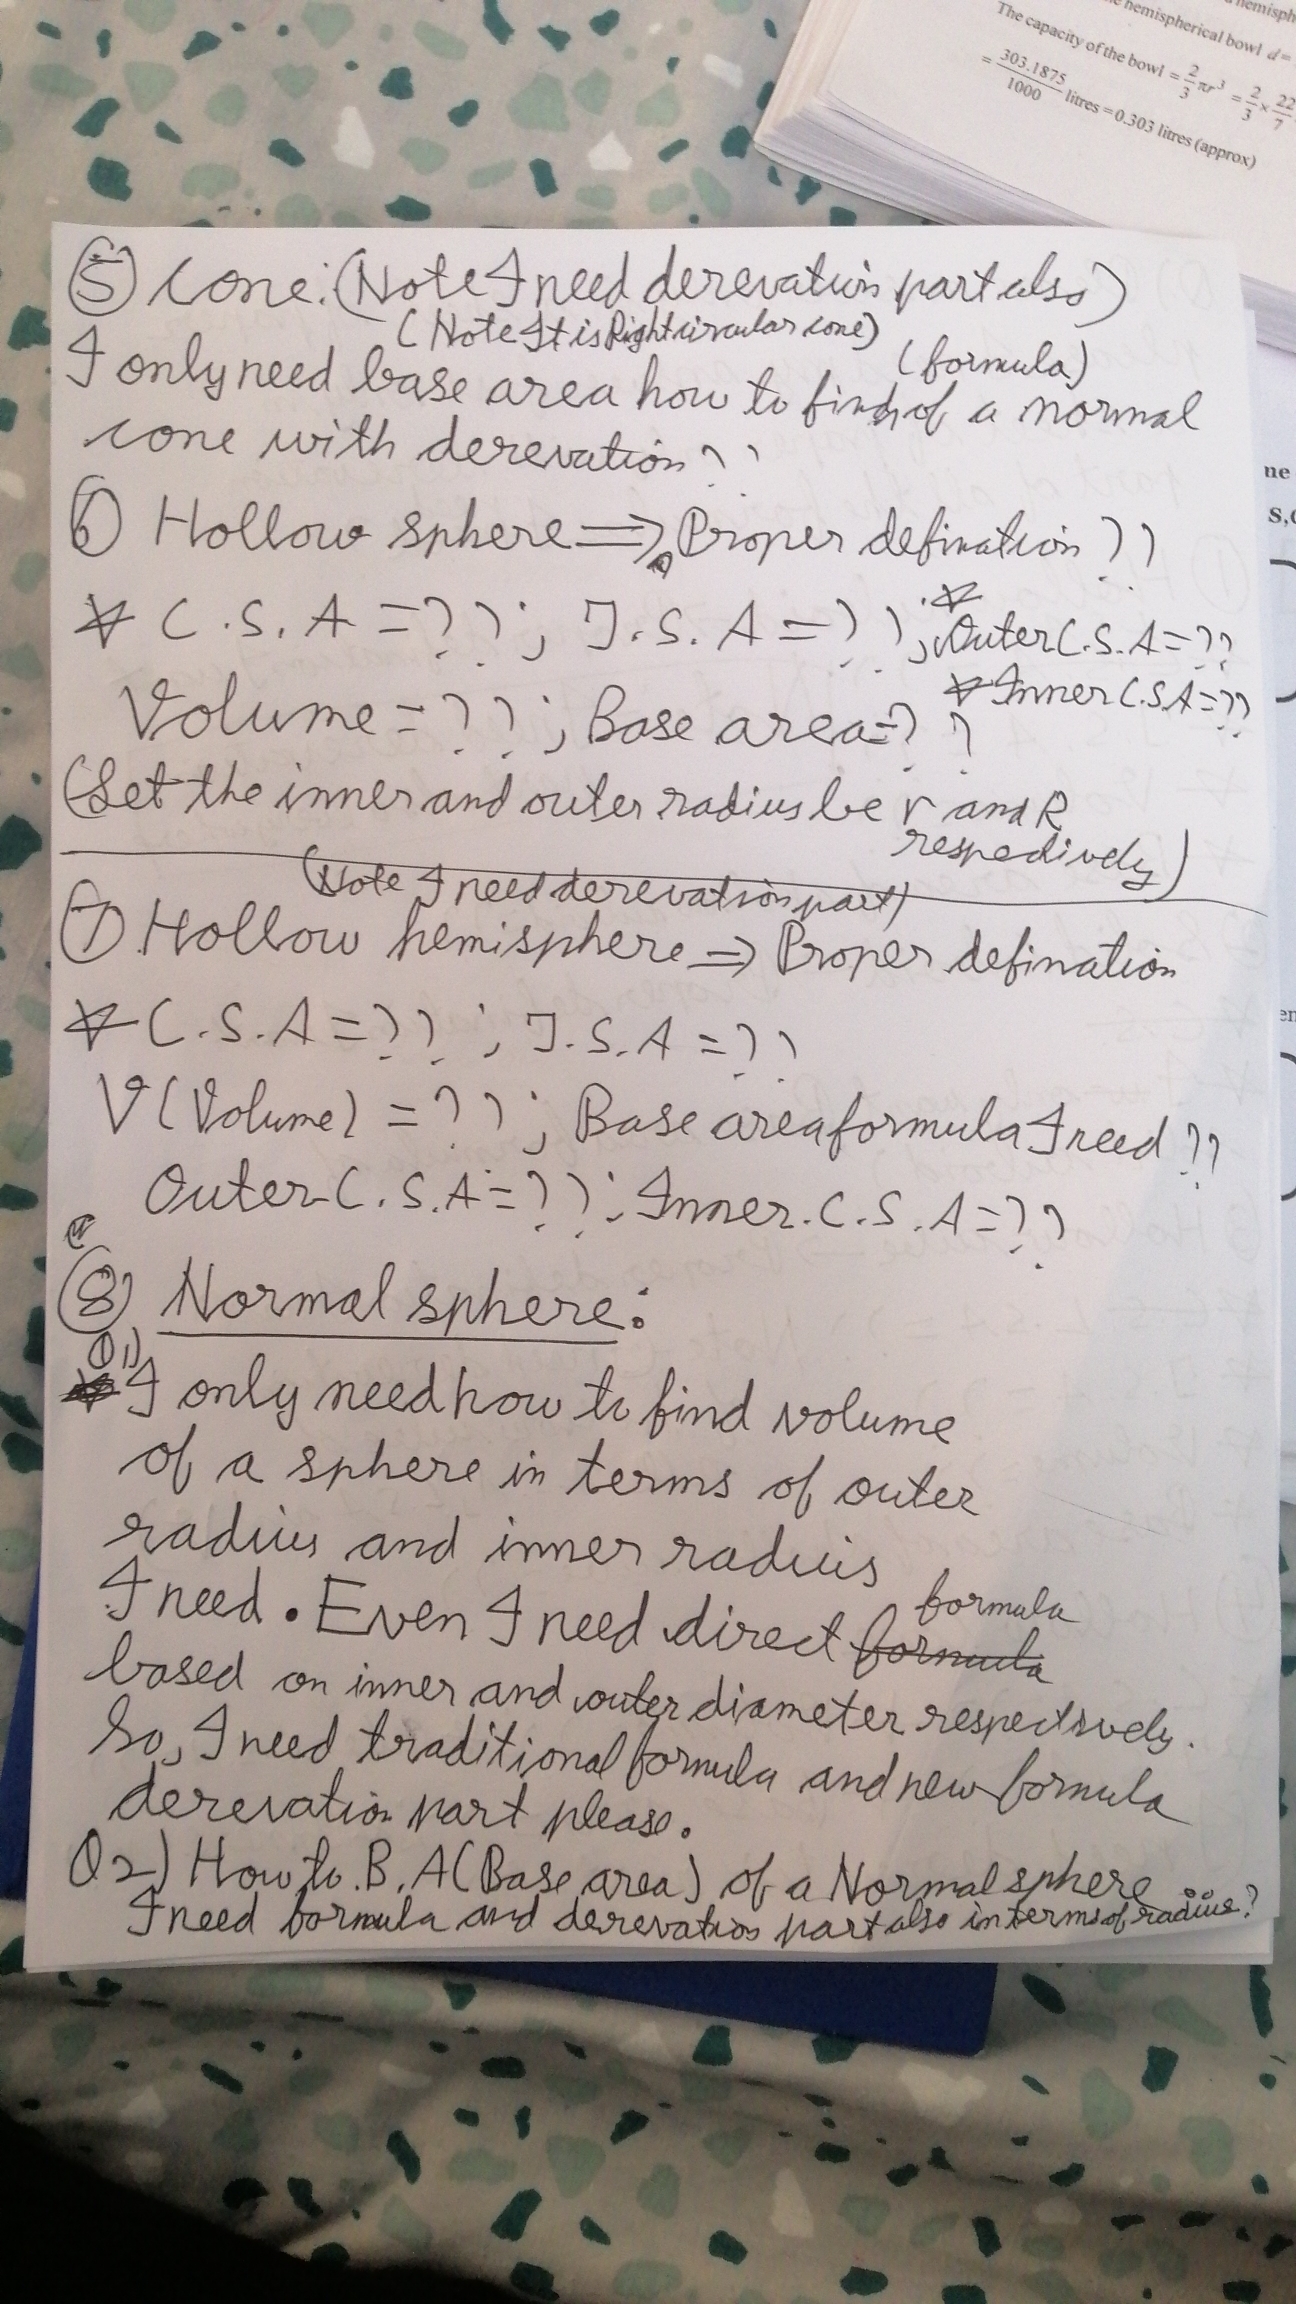 hemisph
e hemispherical bowl d =
The capacity of the bowl = 2/3 πr³ = 2/3 × 22/7
= 303.1875/1000 litres = 0.303 litres (approx)
⑤ Cone: (Note I need derevation part also)
(Note It is Right circular cone)
(formula)
I only need base area how to find, of a normal
cone with derevation ??
⑥ Hollow sphere ⇒ Proper defination ??
* C.S.A = ??; T.S.A = ??; * Outer C.S.A = ??
* Inner C.S.A = ??
Volume = ??; Base area = ??
(Let the inner and outer radius be r and R
respectively)
(Note I need derevation part)
⑦ Hollow hemisphere ⇒ Proper defination
* C.S.A = ??; T.S.A = ??
V (Volume) = ??; Base area formula I need ??
Outer C.S.A = ??; Inner. C.S.A = ??
⑧ Normal sphere:
Q1) I only need how to find volume
of a sphere in terms of outer
radius and inner radius
I need. Even I need direct formula
based on inner and outer diameter respectively.
So, I need traditional formula and new formula
derevation part please.
Q2) How to B.A (Base area) of a Normal sphere
I need formula and derevation part also in terms of radius?
ne
s,
en